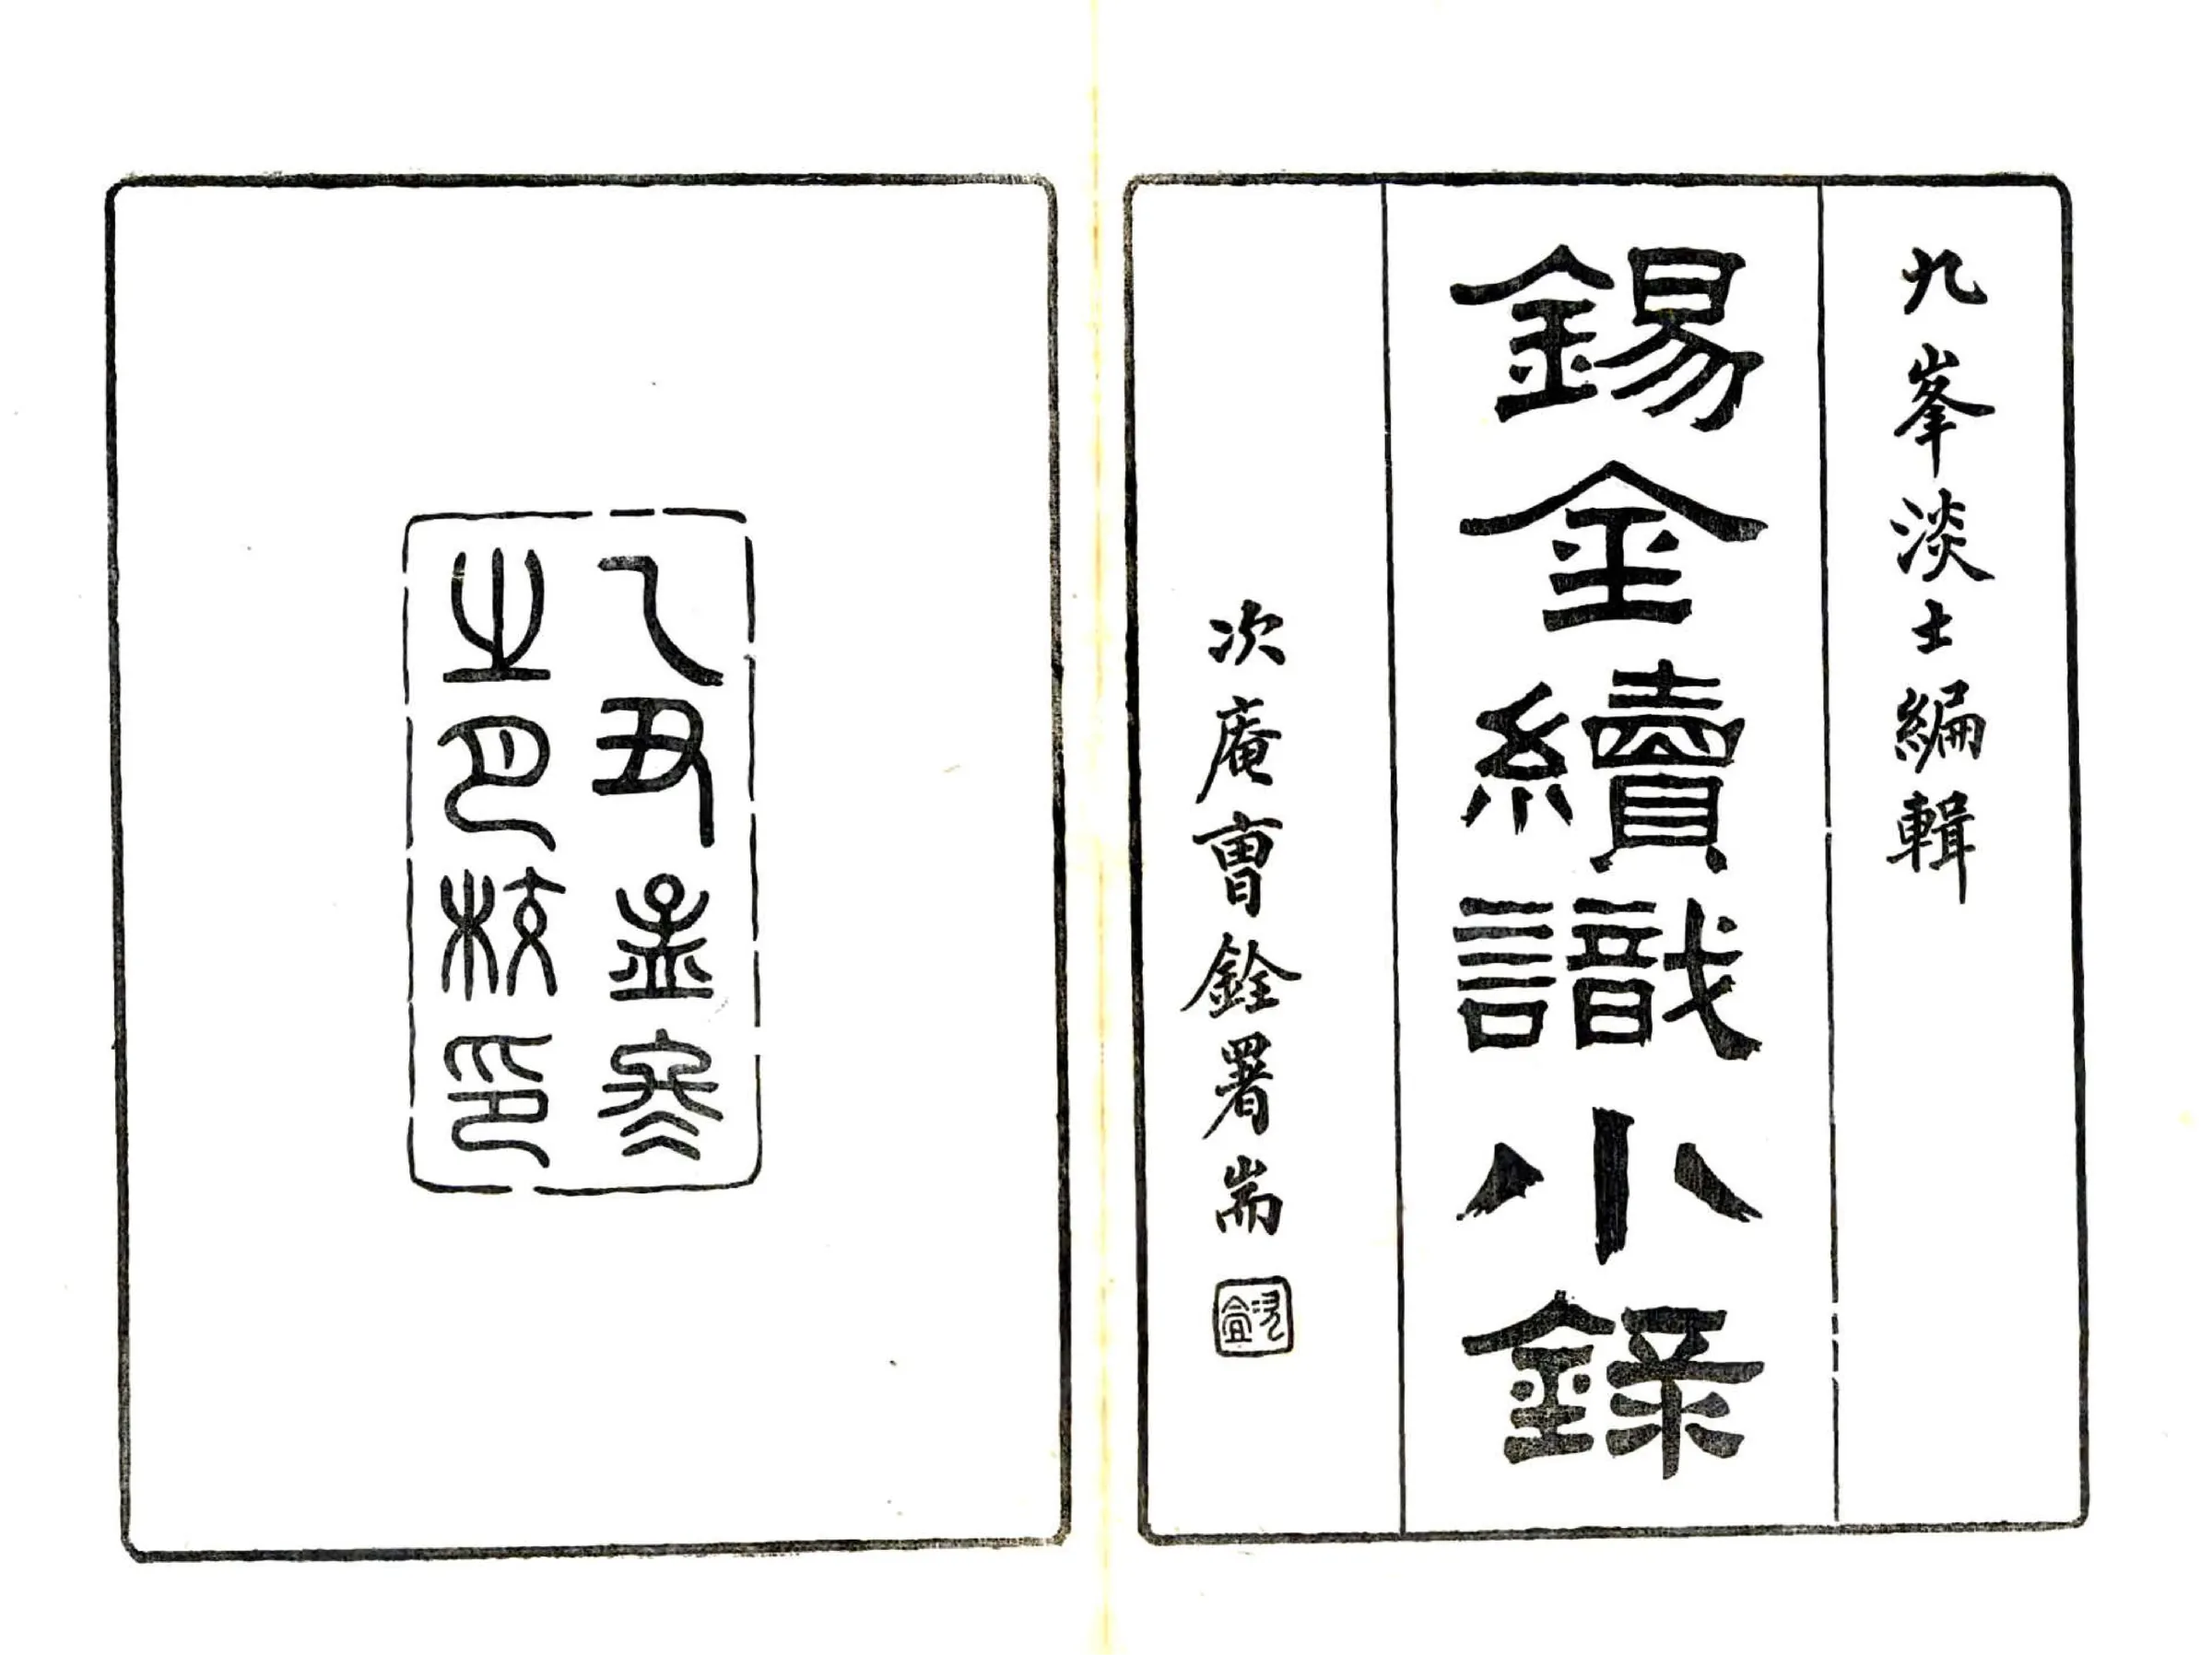 九峯淡士編輯
錫金續識小錄
次庵曹銓署耑
乙丑孟冬
之月校印